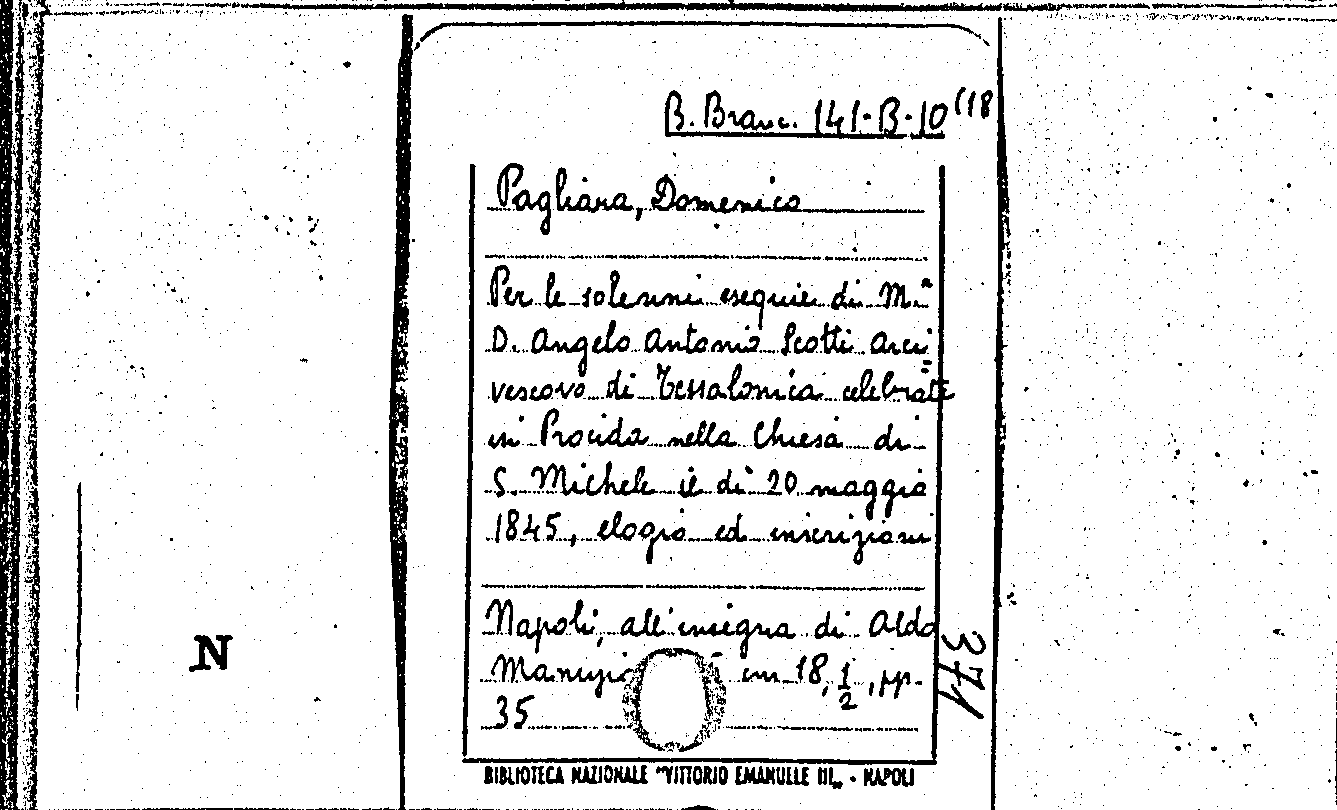 B. Branc. 141-B-10 (18
Pagliara, Domenico
Per le solenni esequie di M.
D. Angelo Antonio Scotti Arci=
vescovo di Tessalonica celebrate
in Procida nella Chiesa di
S. Michele il dì 20 maggio
1845, elogio ed inscrizioni
Napoli, all'insegna di Aldo
Manuzio cm 18,1/2, pp.
35
371
N
BIBLIOTECA NAZIONALE "VITTORIO EMANUELE III„ - NAPOLI